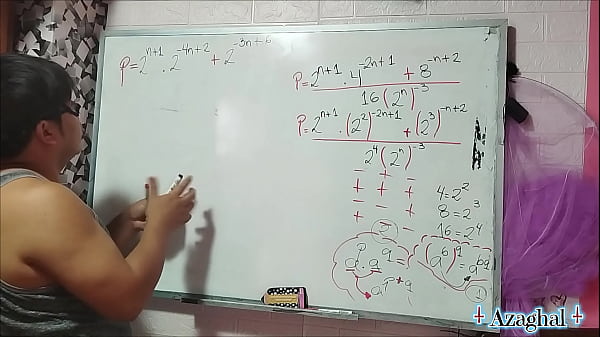 P=2^{n+1} · 2^{-4n+2} + 2^{-3n+6}
P=2^{n+1} · 4^{-2n+1} + 8^{-n+2}
16(2^n)^{-3}
P=2^{n+1} · (2^2)^{-2n+1} + (2^3)^{-n+2}
2^4(2^n)^{-3}
- + -
+ + +
- - +
+ -
4=2^2
8=2^3
16=2^4
2
a^p · a^q =
a^{p+q}
(a^b)^q = a^{bq}
1
Azaghal